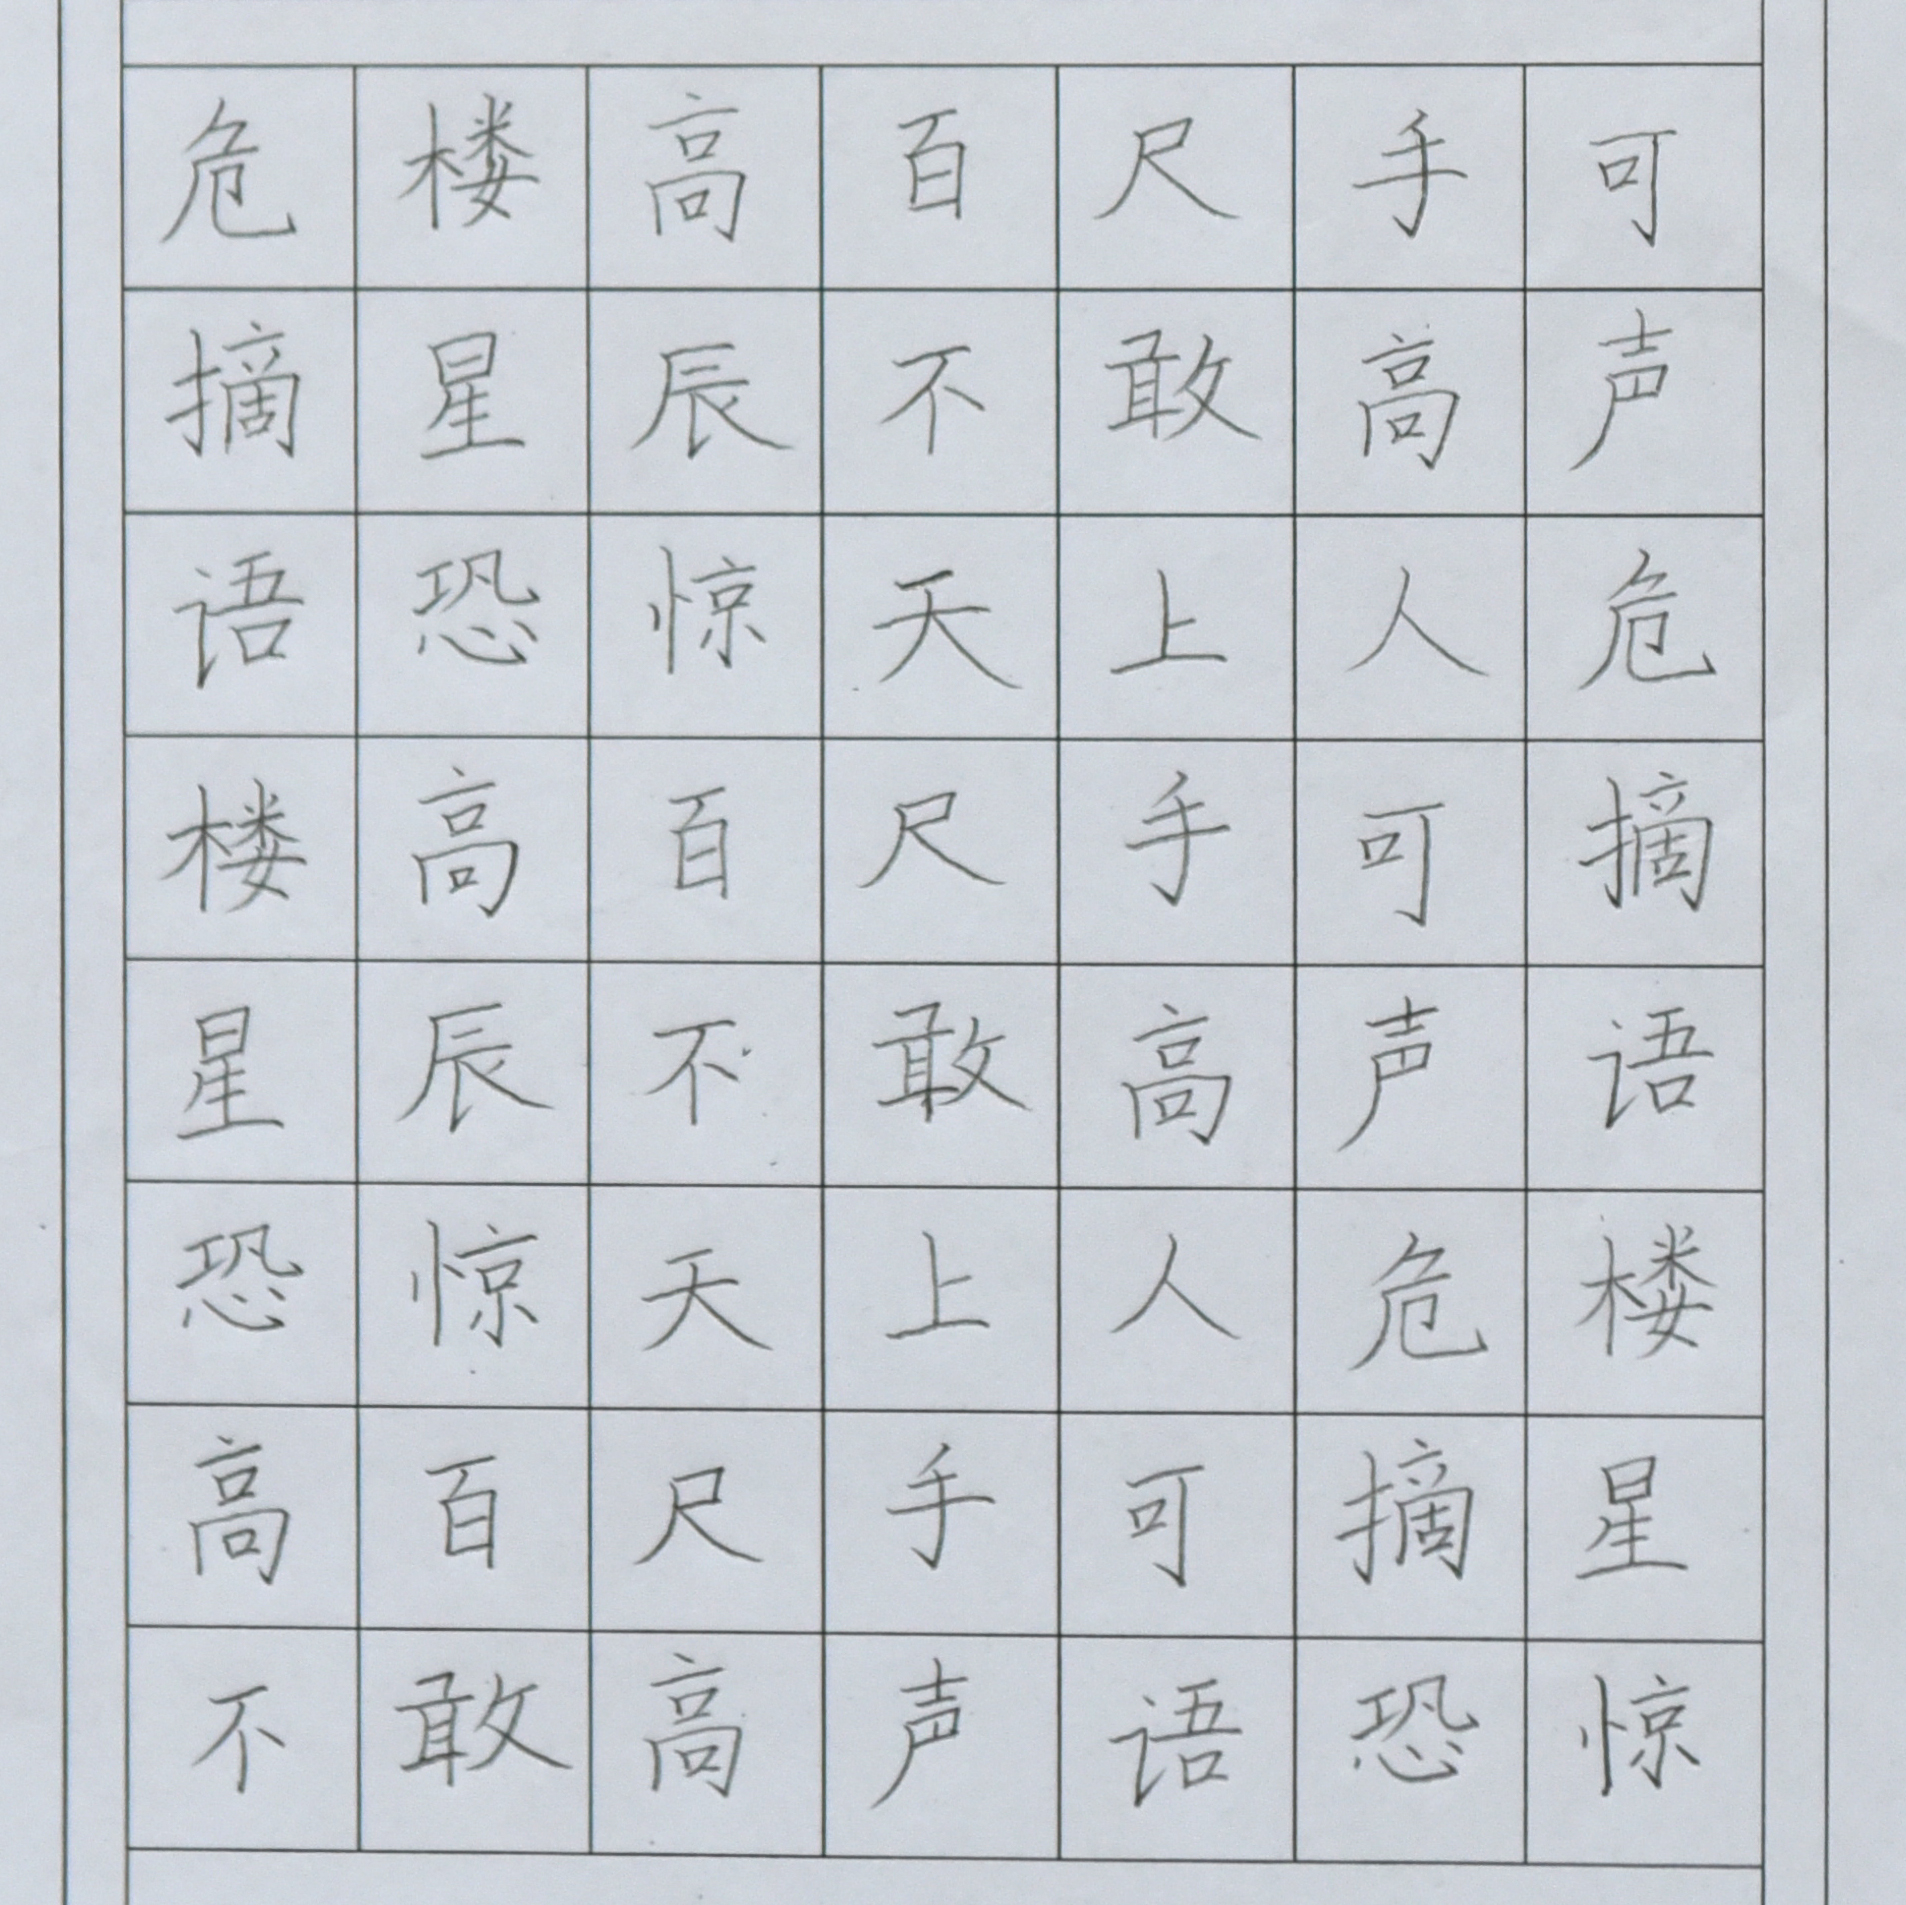 危楼高百尺手可
摘星辰不敢高声
语恐惊天上人危
楼高百尺手可摘
星辰不敢高声语
恐惊天上人危楼
高百尺手可摘星
不敢高声语恐惊